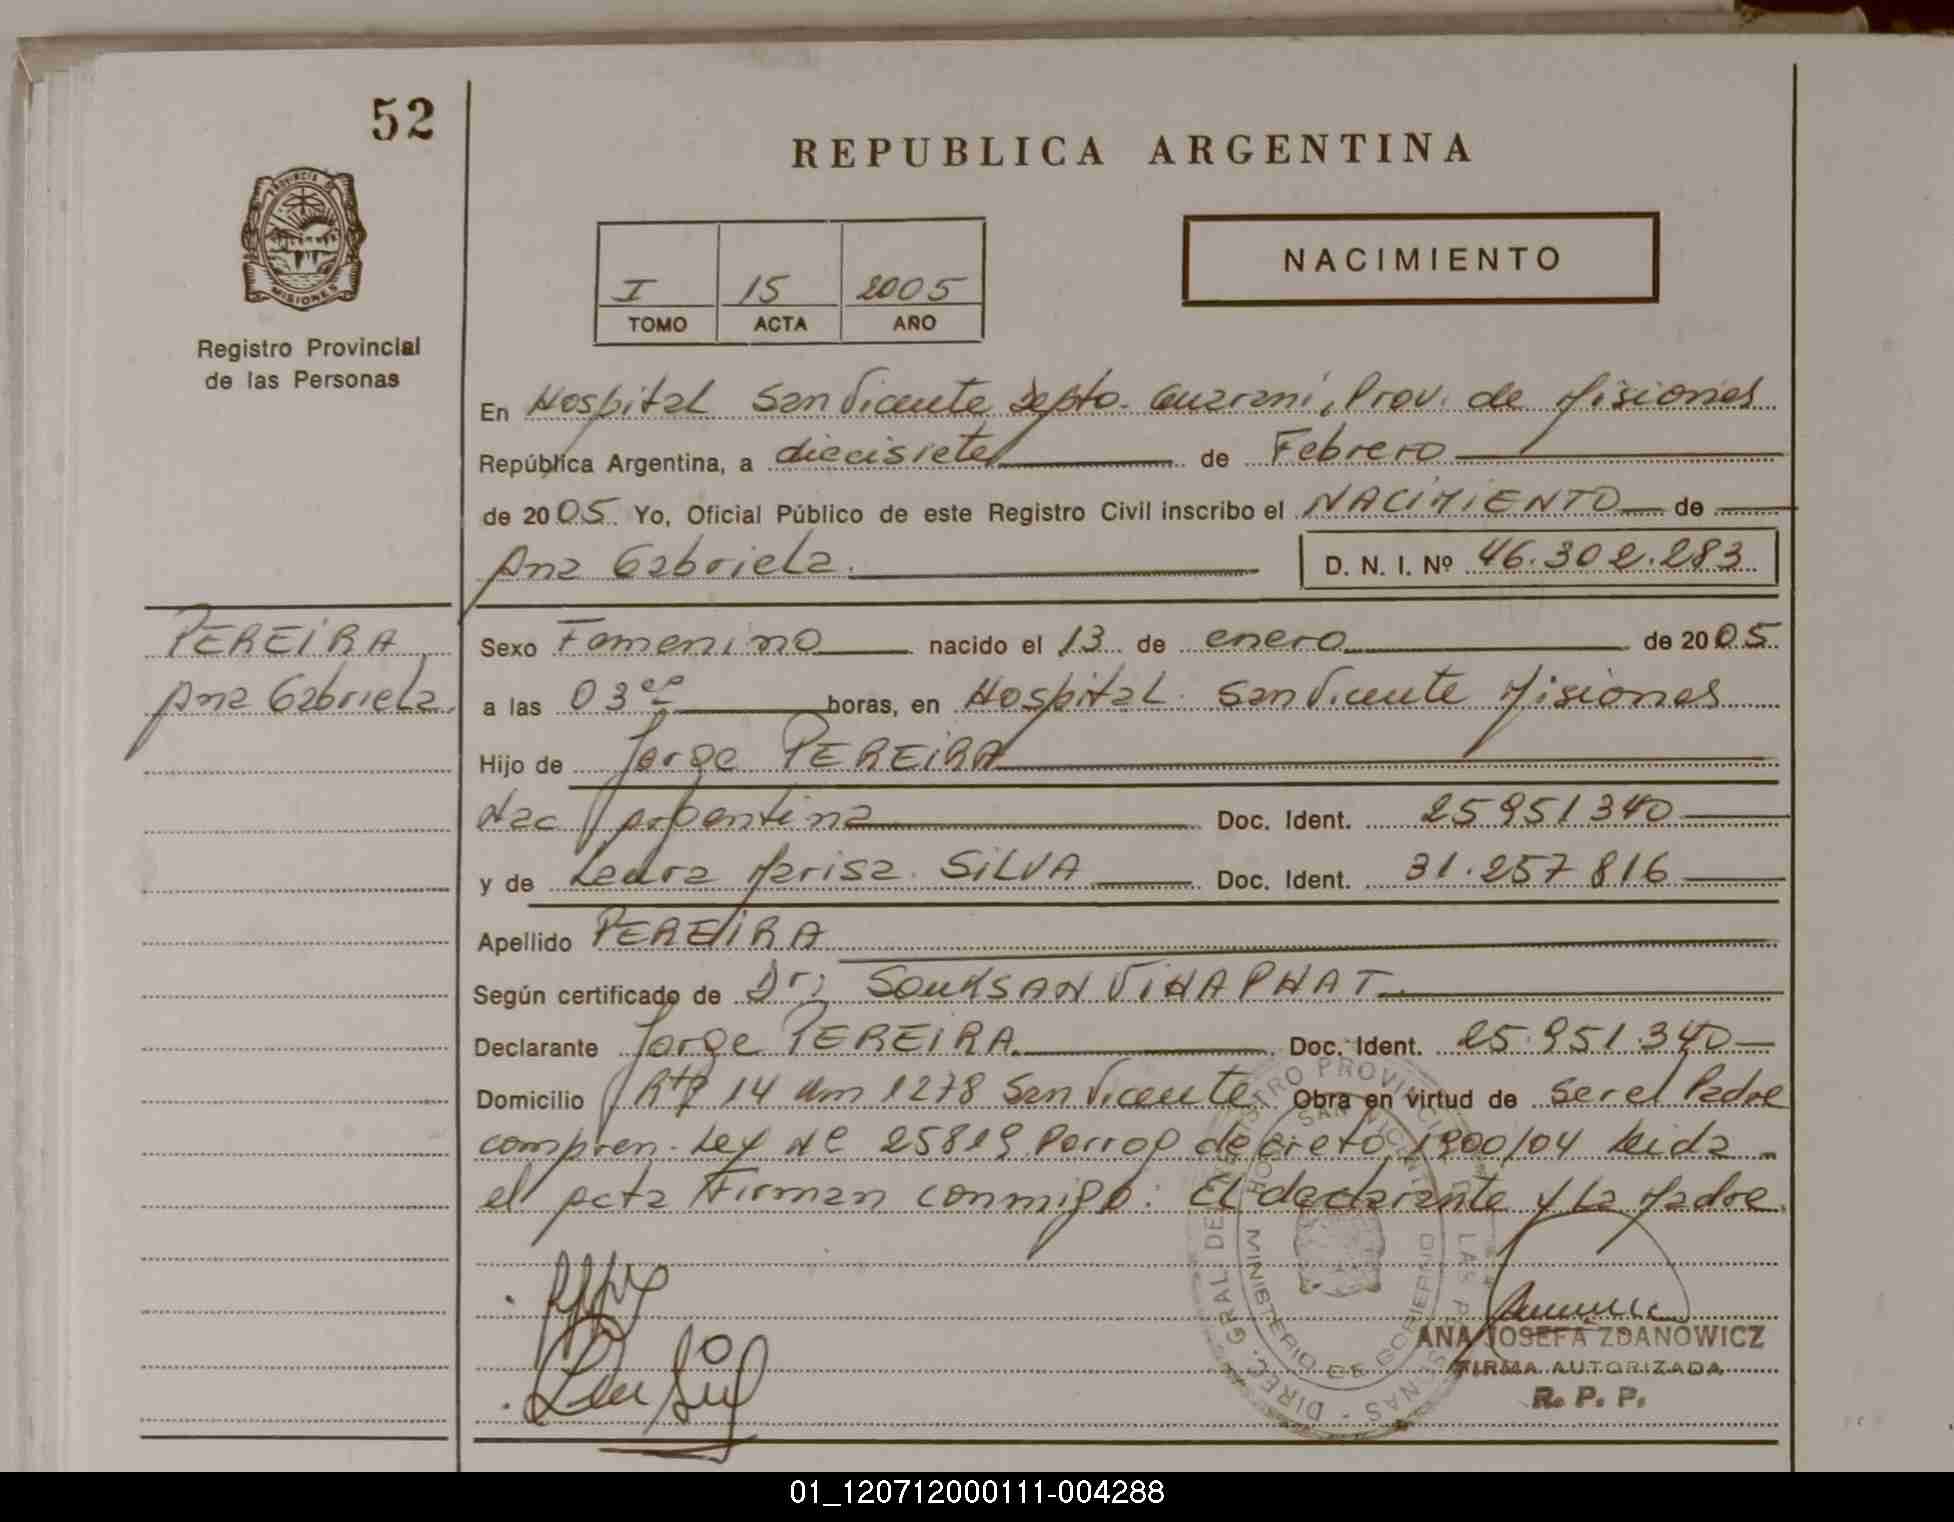 52
REPUBLICA ARGENTINA
PROVINCIA DE
MISIONES
Registro Provincial
de las Personas
I 15 2005
TOMO ACTA AÑO
NACIMIENTO
En Hospital San Vicente Depto. Guaraní, Prov. de Misiones
República Argentina, a diecisiete de Febrero
de 2005. Yo, Oficial Público de este Registro Civil inscribo el NACIMIENTO de
Ana Gabriela. D. N. I. Nº 46.302.283
PEREIRA
Ana Gabriela.
Sexo Femenino nacido el 13 de enero de 2005.
a las 03 horas, en Hospital San Vicente Misiones
Hijo de Jorge PEREIRA
Nac Argentina Doc. Ident. 25951340
y de Laura Marisa SILVA Doc. Ident. 31.257816
Apellido PEREIRA
Según certificado de Dr: SOUKSAN VIHAPHAT
Declarante Jorge PEREIRA Doc. Ident. 25.951.340
Domicilio Rta 14 Km 1278 San Vicente. Obra en virtud de ser el Padre
compren. Ley Nº 25819 Porrog decreto 1900/04 Leida
el acta Firman conmigo: El declarante y La Madre.
DIREC. GRAL DE REGISTRO PROVINCIAL DE LAS PERSONAS
HOSP. SAN VICENTE
MINISTERIO DE GOBIERNO
ANA JOSEFA ZDANOWICZ
FIRMA AUTORIZADA
R. P. P.
01_120712000111-004288